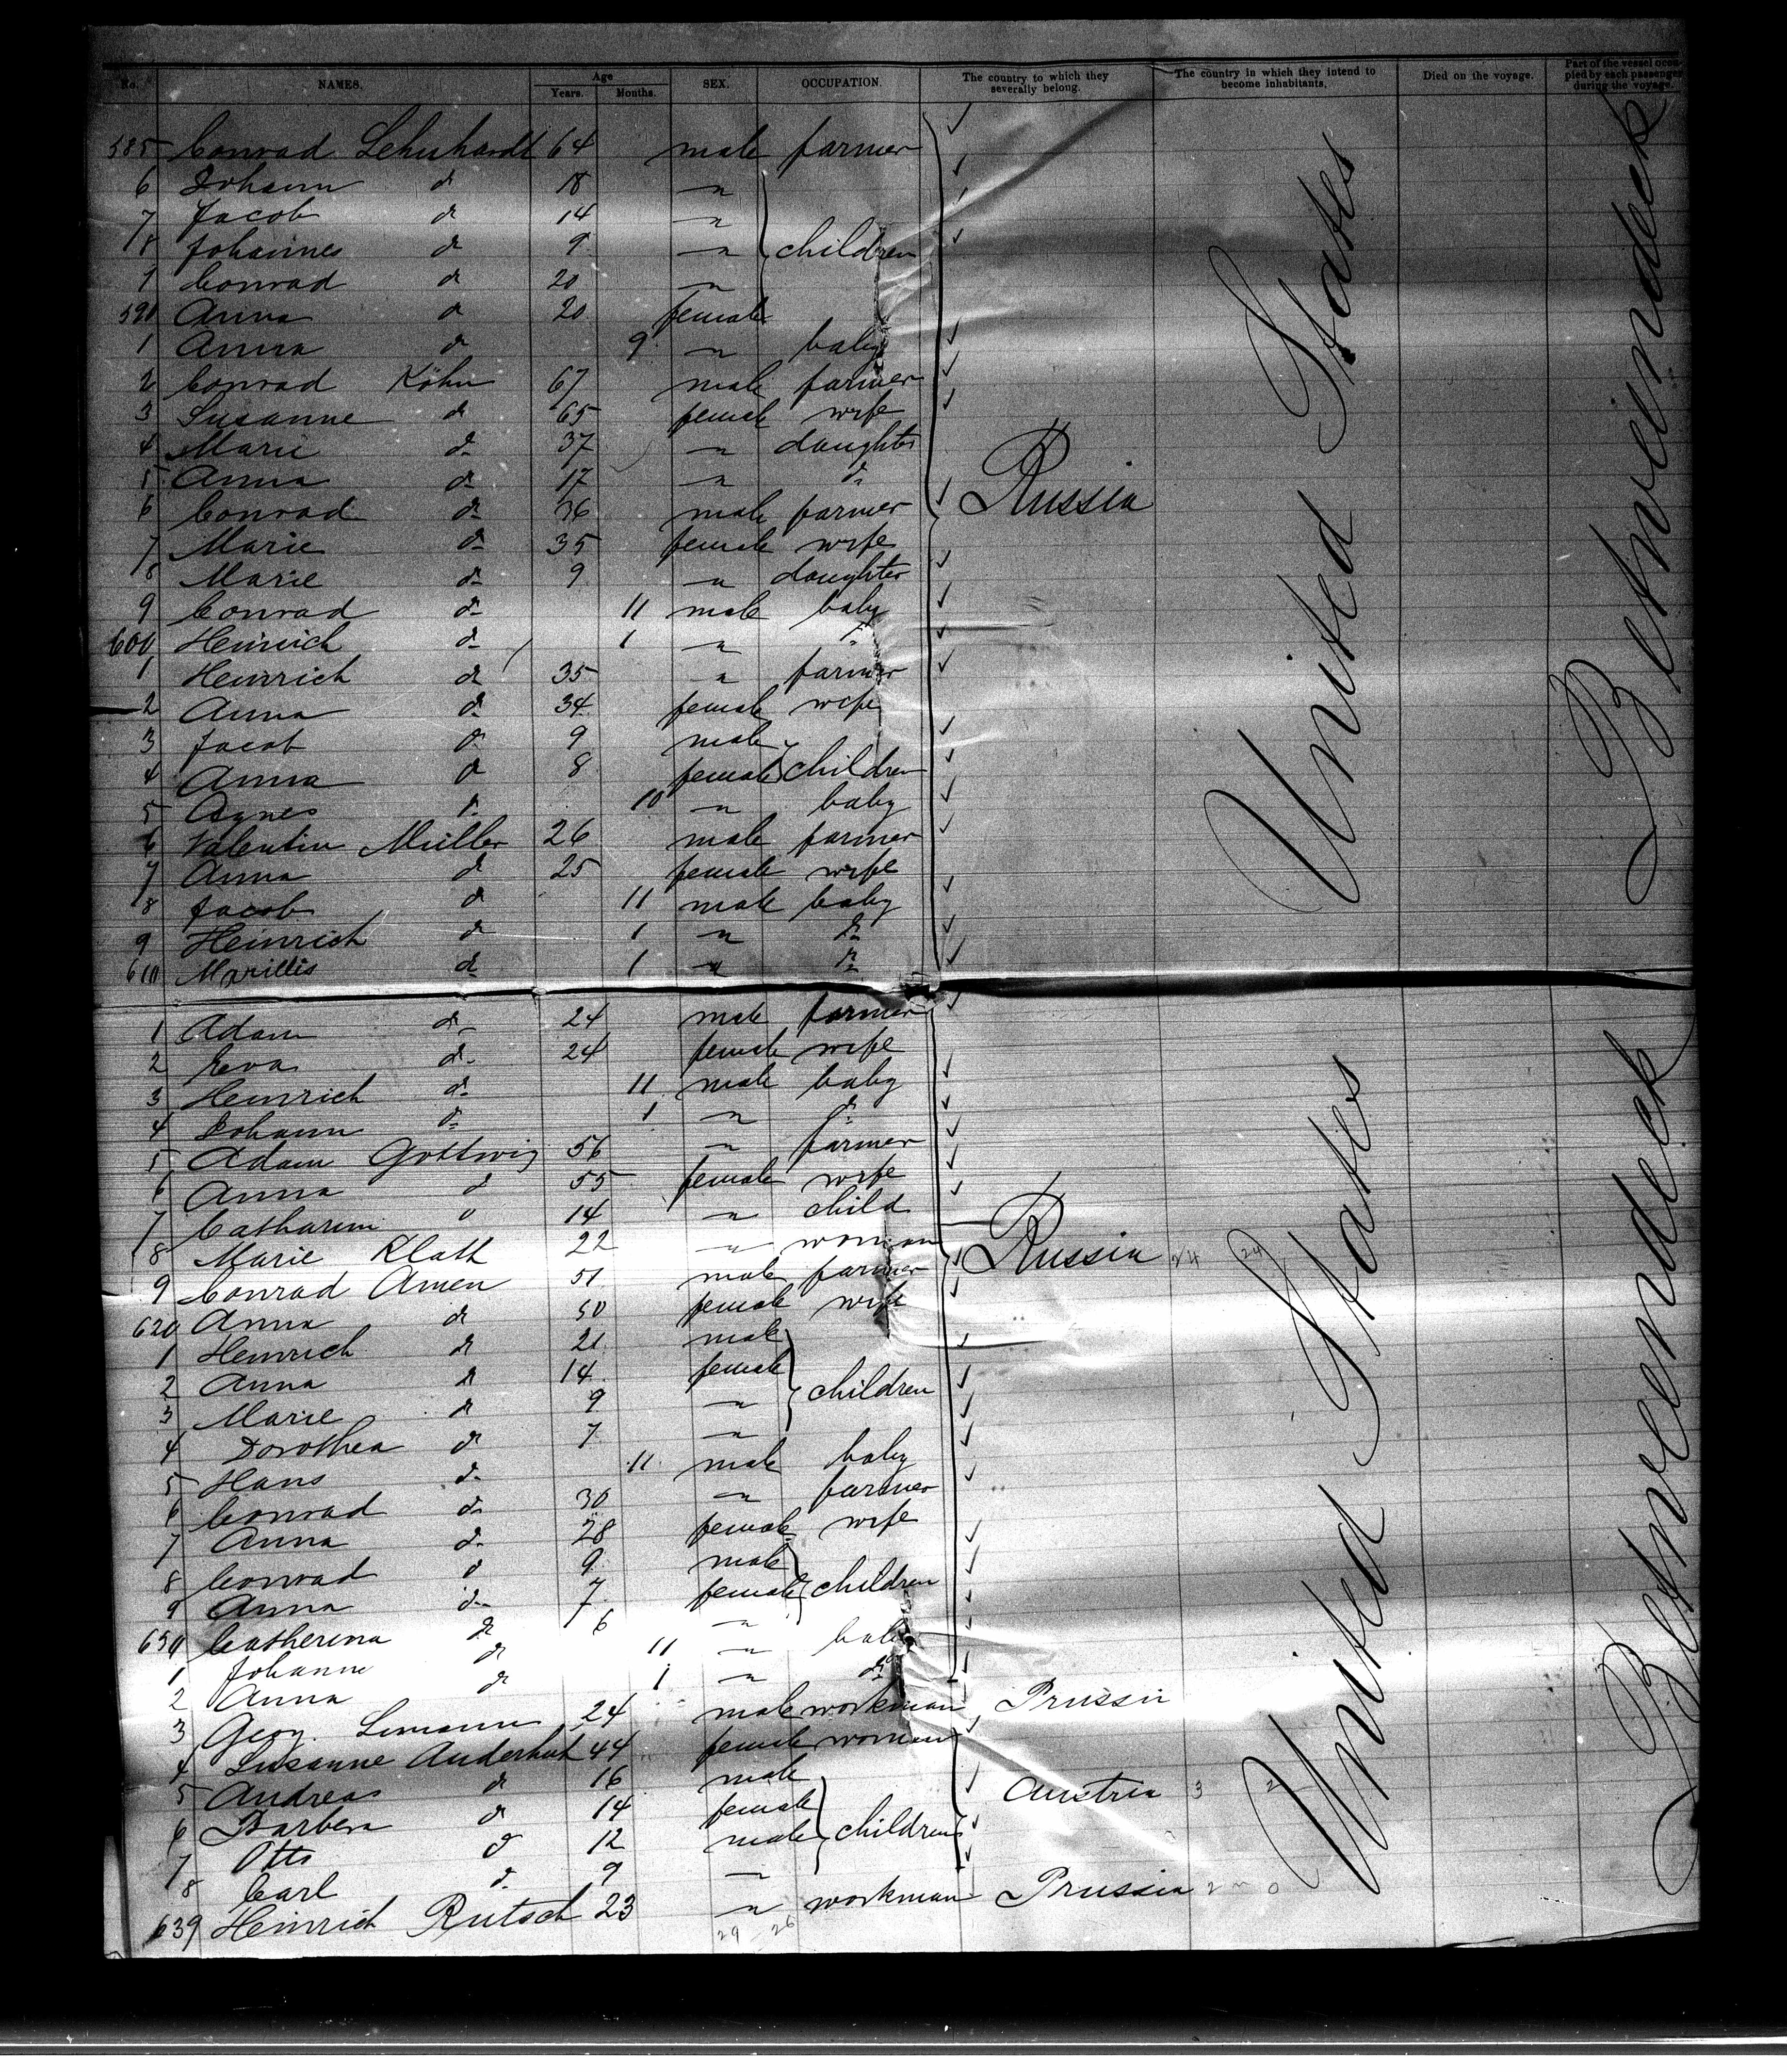 No. NAMES. Age Years. Months. SEX. OCCUPATION. The country to which they severally belong. The country in which they intend to become inhabitants. Died on the voyage. Part of the vessel occupied by each passenger during the voyage.
585 Conrad Lehnhardt 64 male farmer
6 Johann do 18 "
7 Jacob do 14 "
8 Johannes do 9 " children
9 Conrad do 20 "
590 Anna do 20 female
1 Anna do 9 " baby
2 Conrad Köhn 67 male farmer
3 Susanne do 65 female wife
4 Marie do 37 " daughter
5 Anna do 17 " do
6 Conrad do 36 male farmer Russia
7 Marie do 35 female wife
8 Marie do 9 " daughter
9 Conrad do 11 male baby
600 Heinrich do 1 " "
1 Heinrich do 35 " farmer
2 Anna do 34 female wife
3 Jacob do 9 male
4 Anna do 8 female children
5 Agnes do 10 " baby
6 Valentin Müller 26 male farmer
7 Anna do 25 female wife
8 Jacob do 11 male baby
9 Heinrich do 1 " do
610 Marillis do 1 " do
United States
Betweendeck
1 Adam do 24 male farmer
2 Eva do 24 female wife
3 Heinrich do 11 male baby
4 Johann do 1 " do
5 Adam Gottwig 56 " farmer
6 Anna do 55 female wife
7 Catharine do 14 " child
8 Marie Klath 22 " woman Russia 24 24
9 Conrad Amen 51 male farmer
620 Anna do 50 female wife
1 Heinrich do 21 male
2 Anna do 14 female children
3 Marie do 9 "
4 Dorothea do 7 "
5 Hans do 11 male baby
6 Conrad do 30 " farmer
7 Anna do 28 female wife
8 Conrad do 9 male
9 Anna do 7 female children
630 Catherina do 6 "
1 Johanne do 11 " baby
2 Anna do 1 " do
3 Georg 24 male workman Prussia
4 Susanne Anderhub 44 female woman
5 Andreas do 16 male Austria 3 2
6 Barbera do 14 female
7 Otto do 12 male children
8 Carl do 9 "
639 Heinrich Rutsch 23 " workman Prussia 2 0
29 26
United States
Betweendeck